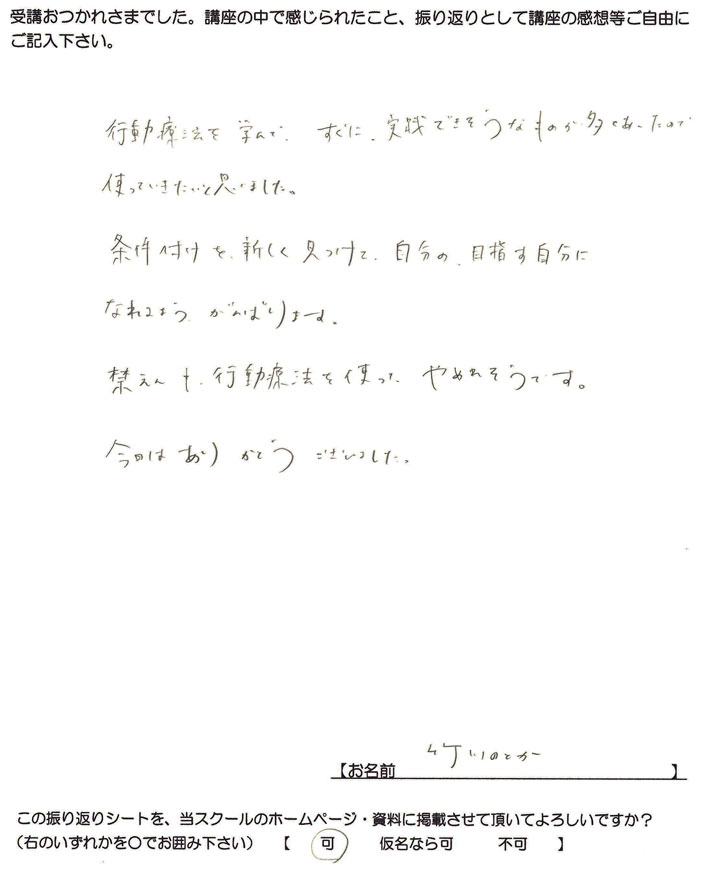 受講おつかれさまでした。講座の中で感じられたこと、振り返りとして講座の感想等ご自由に
ご記入下さい。
行動療法を学んで、すぐに、実践できそうなものが多くあったので
使っていきたいと思いました。
条件付けを、新しく見つけて、自分の、目指す自分に
なれるよう、がんばります。
禁えんも、行動療法を使って やめれそうです。
今日はありがとうございました。
【お名前 】
この振り返りシートを、当スクールのホームページ・資料に掲載させて頂いてよろしいですか？
（右のいずれかを〇でお囲み下さい） 【 可 仮名なら可 不可 】